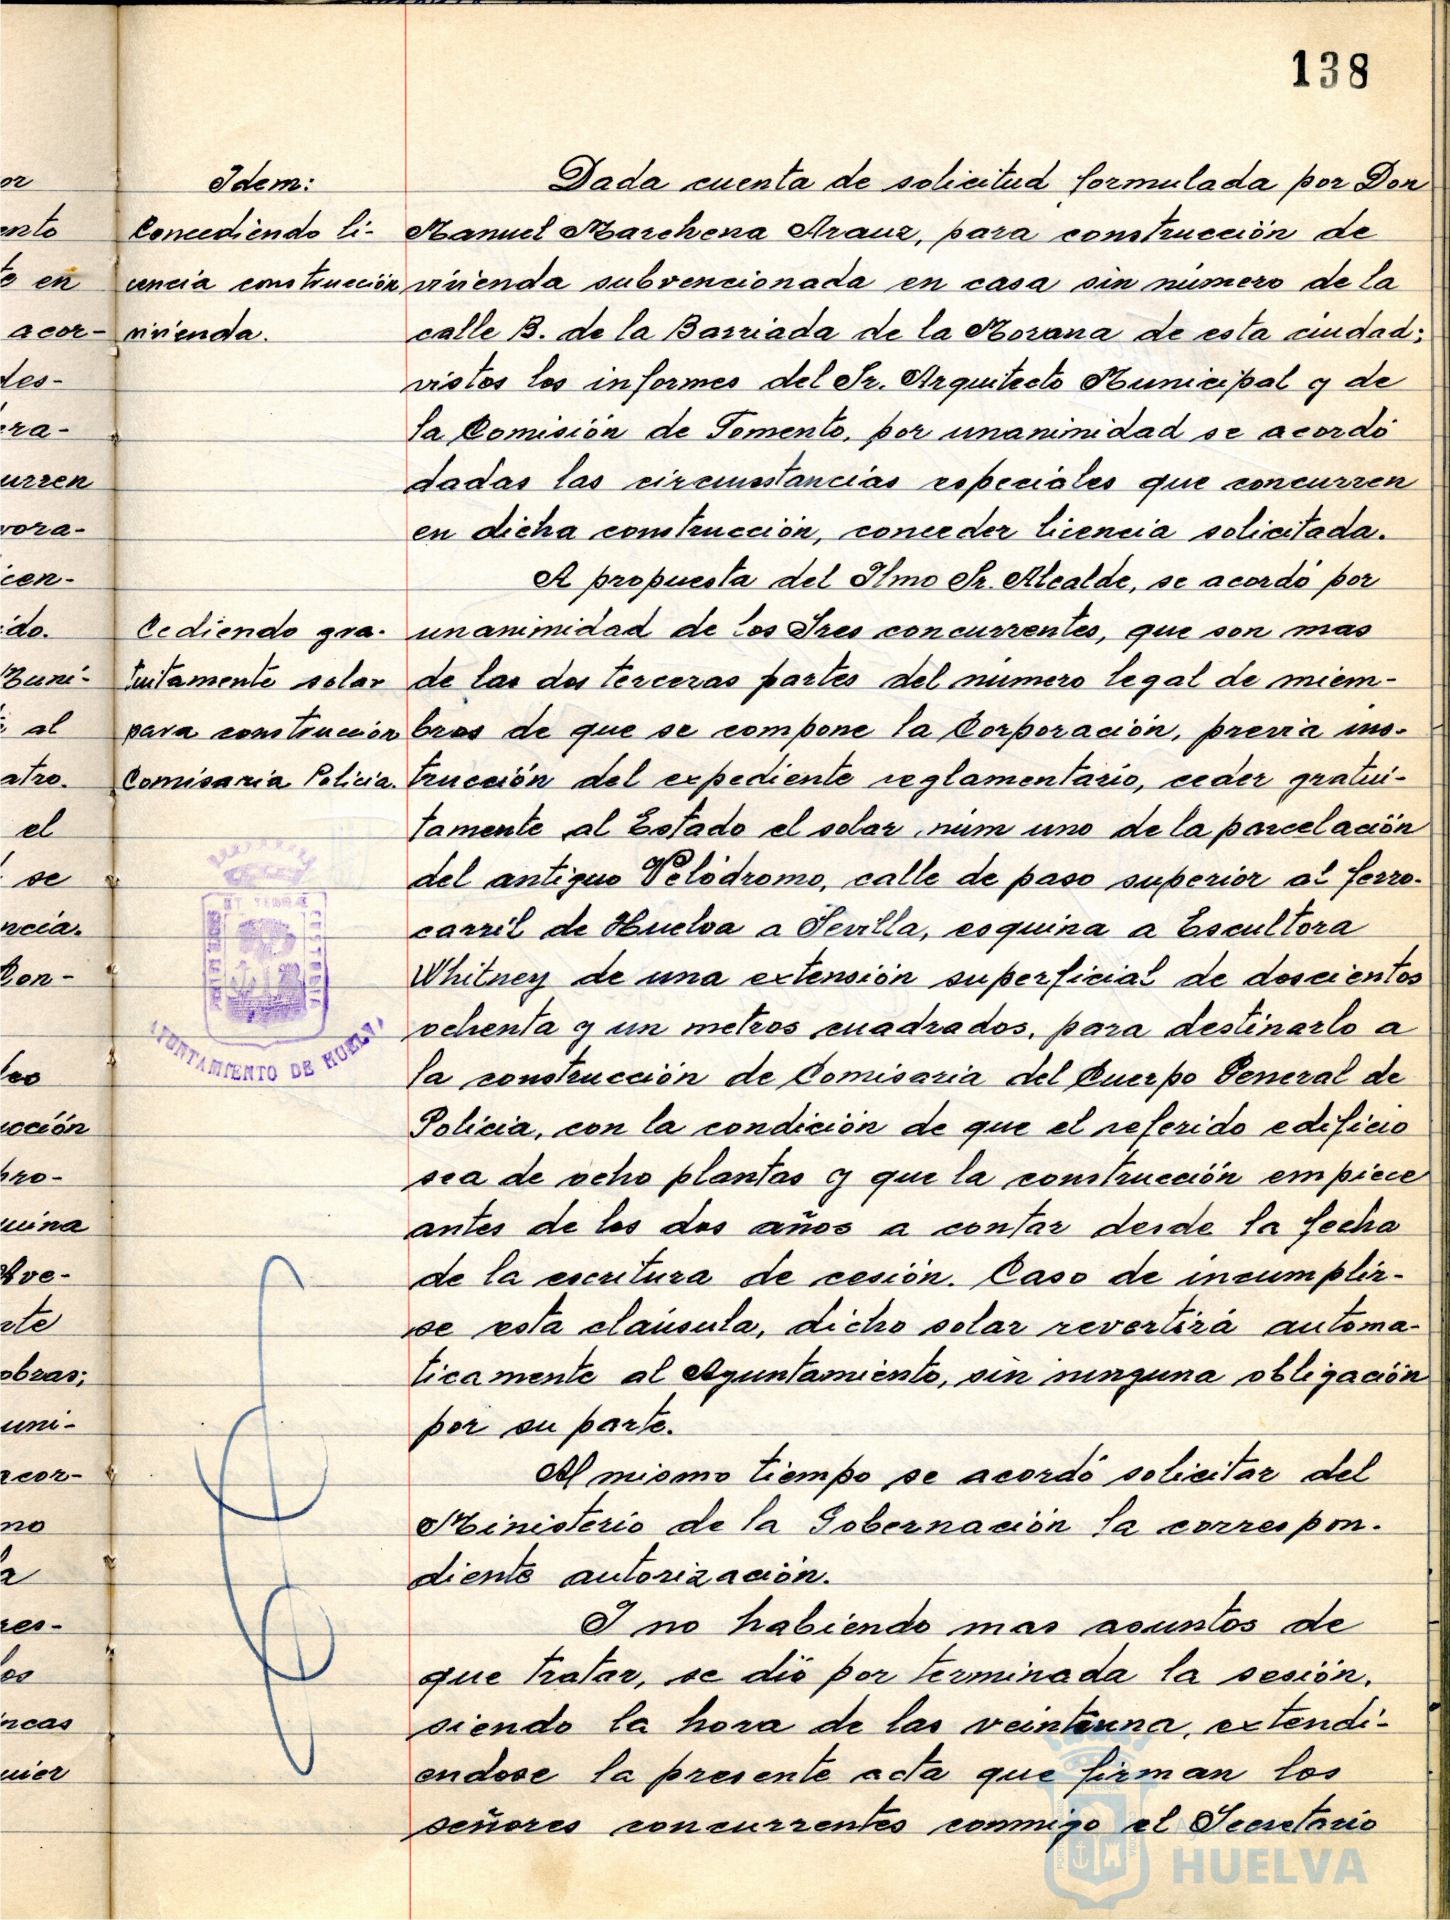 138
or
ento
te en
acor-
des-
era-
urren
vora-
icen-
ido.
Muni-
al
atro.
el
se
ncia.
Con-
los
ucción
pro-
uina
Ave-
rte
obras;
uni-
acor-
no
la
res-
los
incas
uier
Idem:
Concediendo li-
cencia construcción
vivienda.
Cediendo gra-
tuitamente solar
para construcción
Comisaria Policia.
AYUNTAMIENTO DE HUELVA
Dada cuenta de solicitud formulada por Don
Manuel Marchena Arauz, para construcción de
vivienda subvencionada en casa sin número de la
calle B. de la Barriada de la Morana de esta ciudad;
vistos los informes del Sr. Arquitecto Municipal y de
la Comisión de Fomento, por unanimidad se acordó
dadas las circunstancias especiales que concurren
en dicha construcción, conceder licencia solicitada.
A propuesta del Ilmo Sr. Alcalde, se acordó por
unanimidad de los Sres concurrentes, que son mas
de las dos terceras partes del número legal de miem-
bros de que se compone la Corporación, previa ins-
trucción del expediente reglamentario, ceder gratui-
tamente al Estado el solar núm uno de la parcelación
del antiguo Velódromo, calle de paso superior al ferro-
carril de Huelva a Sevilla, esquina a Escultora
Whitney de una extensión superficial de doscientos
ochenta y un metros cuadrados, para destinarlo a
la construcción de Comisaria del Cuerpo General de
Policia, con la condición de que el referido edificio
sea de ocho plantas y que la construcción empiece
antes de los dos años a contar desde la fecha
de la escritura de cesión. Caso de incumplir-
se esta claúsula, dicho solar revertirá automa-
ticamente al Ayuntamiento, sin ninguna obligación
por su parte.
Al mismo tiempo se acordó solicitar del
Ministerio de la Gobernación la correspon-
diente autorización.
I no habiendo mas asuntos de
que tratar, se dió por terminada la sesión,
siendo la hora de las veintiuna, extendi-
endose la presente acta que firman los
señores concurrentes conmigo el Secretario
HUELVA